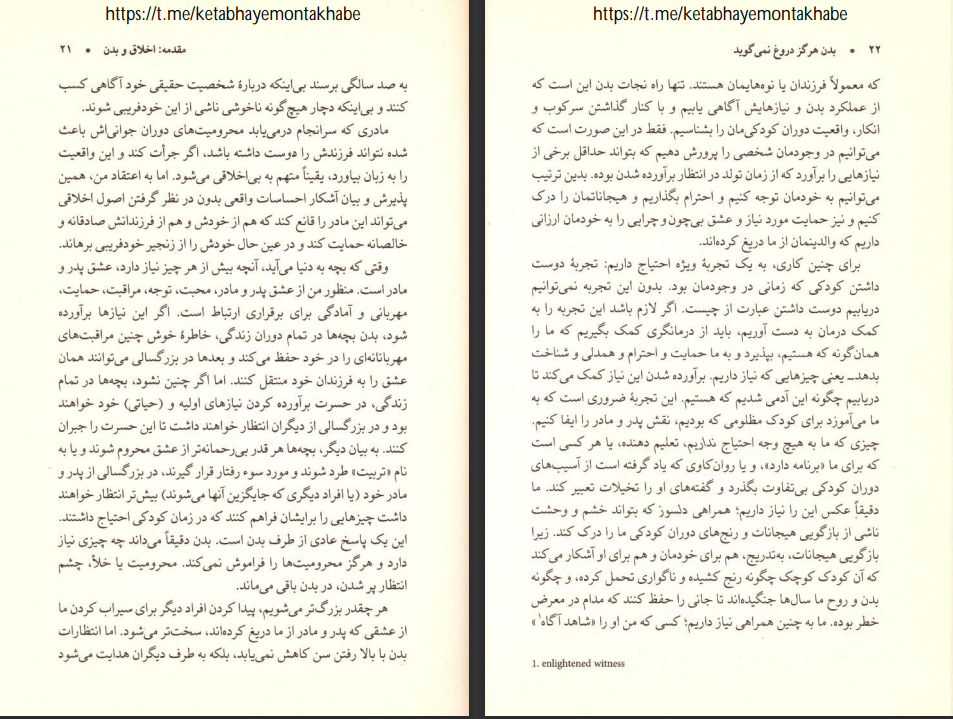 https://t.me/ketabhayemontakhabe
مقدمه: اخلاق و بدن • ۲۱
به صد سالگی برسند بی‌اینکه دربارهٔ شخصیت حقیقی خود آگاهی کسب
کنند و بی‌اینکه دچار هیچ‌گونه ناخوشی ناشی از این خودفریبی شوند.
مادری که سرانجام درمی‌یابد محرومیت‌های دوران جوانی‌اش باعث
شده نتواند فرزندش را دوست داشته باشد، اگر جرأت کند و این واقعیت
را به زبان بیاورد، یقیناً متهم به بی‌اخلاقی می‌شود. اما به اعتقاد من، همین
پذیرش و بیان آشکار احساسات واقعی بدون در نظر گرفتن اصول اخلاقی
می‌تواند این مادر را قانع کند که هم از خودش و هم از فرزندانش صادقانه و
خالصانه حمایت کند و در عین حال خودش را از زنجیر خودفریبی برهاند.
وقتی که بچه به دنیا می‌آید، آنچه بیش از هر چیز نیاز دارد، عشق پدر و
مادر است. منظور من از عشق پدر و مادر، محبت، توجه، مراقبت، حمایت،
مهربانی و آمادگی برای برقراری ارتباط است. اگر این نیازها برآورده
شود، بدن بچه‌ها در تمام دوران زندگی، خاطرهٔ خوش چنین مراقبت‌های
مهربانانه‌ای را در خود حفظ می‌کند و بعدها در بزرگسالی می‌توانند همان
عشق را به فرزندان خود منتقل کنند. اما اگر چنین نشود، بچه‌ها در تمام
زندگی، در حسرت برآورده کردن نیازهای اولیه و (حیاتی) خود خواهند
بود و در بزرگسالی از دیگران انتظار خواهند داشت تا این حسرت را جبران
کنند. به بیان دیگر، بچه‌ها هر قدر بی‌رحمانه‌تر از عشق محروم شوند و یا به
نام «تربیت» طرد شوند و مورد سوء رفتار قرار گیرند، در بزرگسالی از پدر و
مادر خود (یا افراد دیگری که جایگزین آنها می‌شوند) بیش‌تر انتظار خواهند
داشت چیزهایی را برایشان فراهم کنند که در زمان کودکی احتیاج داشتند.
این یک پاسخ عادی از طرف بدن است. بدن دقیقاً می‌داند چه چیزی نیاز
دارد و هرگز محرومیت‌ها را فراموش نمی‌کند. محرومیت یا خلأ، چشم
انتظار پر شدن، در بدن باقی می‌ماند.
هر چقدر بزرگ‌تر می‌شویم، پیدا کردن افراد دیگر برای سیراب کردن ما
از عشقی که پدر و مادر از ما دریغ کرده‌اند، سخت‌تر می‌شود. اما انتظارات
بدن با بالا رفتن سن کاهش نمی‌یابد، بلکه به طرف دیگران هدایت می‌شود
https://t.me/ketabhayemontakhabe
۲۲ • بدن هرگز دروغ نمی‌گوید
که معمولاً فرزندان یا نوه‌هایمان هستند. تنها راه نجات بدن این است که
از عملکرد بدن و نیازهایش آگاهی یابیم و با کنار گذاشتن سرکوب و
انکار، واقعیت دوران کودکی‌مان را بشناسیم. فقط در این صورت است که
می‌توانیم در وجودمان شخصی را پرورش دهیم که بتواند حداقل برخی از
نیازهایی را برآورد که از زمان تولد در انتظار برآورده شدن بوده. بدین ترتیب
می‌توانیم به خودمان توجه کنیم و احترام بگذاریم و هیجاناتمان را درک
کنیم و نیز حمایت مورد نیاز و عشق بی‌چون‌وچرایی را به خودمان ارزانی
داریم که والدینمان از ما دریغ کرده‌اند.
برای چنین کاری، به یک تجربهٔ ویژه احتیاج داریم: تجربهٔ دوست
داشتن کودکی که زمانی در وجودمان بود. بدون این تجربه نمی‌توانیم
دریابیم دوست داشتن عبارت از چیست. اگر لازم باشد این تجربه را به
کمک درمان به دست آوریم، باید از درمانگری کمک بگیریم که ما را
همان‌گونه که هستیم، بپذیرد و به ما حمایت و احترام و همدلی و شناخت
بدهد_ یعنی چیزهایی که نیاز داریم. برآورده شدن این نیاز کمک می‌کند تا
دریابیم چگونه این آدمی شدیم که هستیم. این تجربهٔ ضروری است که به
ما می‌آموزد برای کودک مظلومی که بودیم، نقش پدر و مادر را ایفا کنیم.
چیزی که ما به هیچ وجه احتیاج نداریم، تعلیم دهنده، یا هر کسی است
که برای ما «برنامه دارد»، و یا روان‌کاوی که یاد گرفته است از آسیب‌های
دوران کودکی بی‌تفاوت بگذرد و گفته‌های او را تخیلات تعبیر کند. ما
دقیقاً عکس این را نیاز داریم؛ همراهی دلسوز که بتواند خشم و وحشت
ناشی از بازگویی هیجانات و رنج‌های دوران کودکی ما را درک کند. زیرا
بازگویی هیجانات، به‌تدریج، هم برای خودمان و هم برای او آشکار می‌کند
که آن کودک کوچک چگونه رنج کشیده و ناگواری تحمل کرده، و چگونه
بدن و روح ما سال‌ها جنگیده‌اند تا جانی را حفظ کنند که مدام در معرض
خطر بوده. ما به چنین همراهی نیاز داریم؛ کسی که من او را «شاهد آگاه¹»
1. enlightened witness